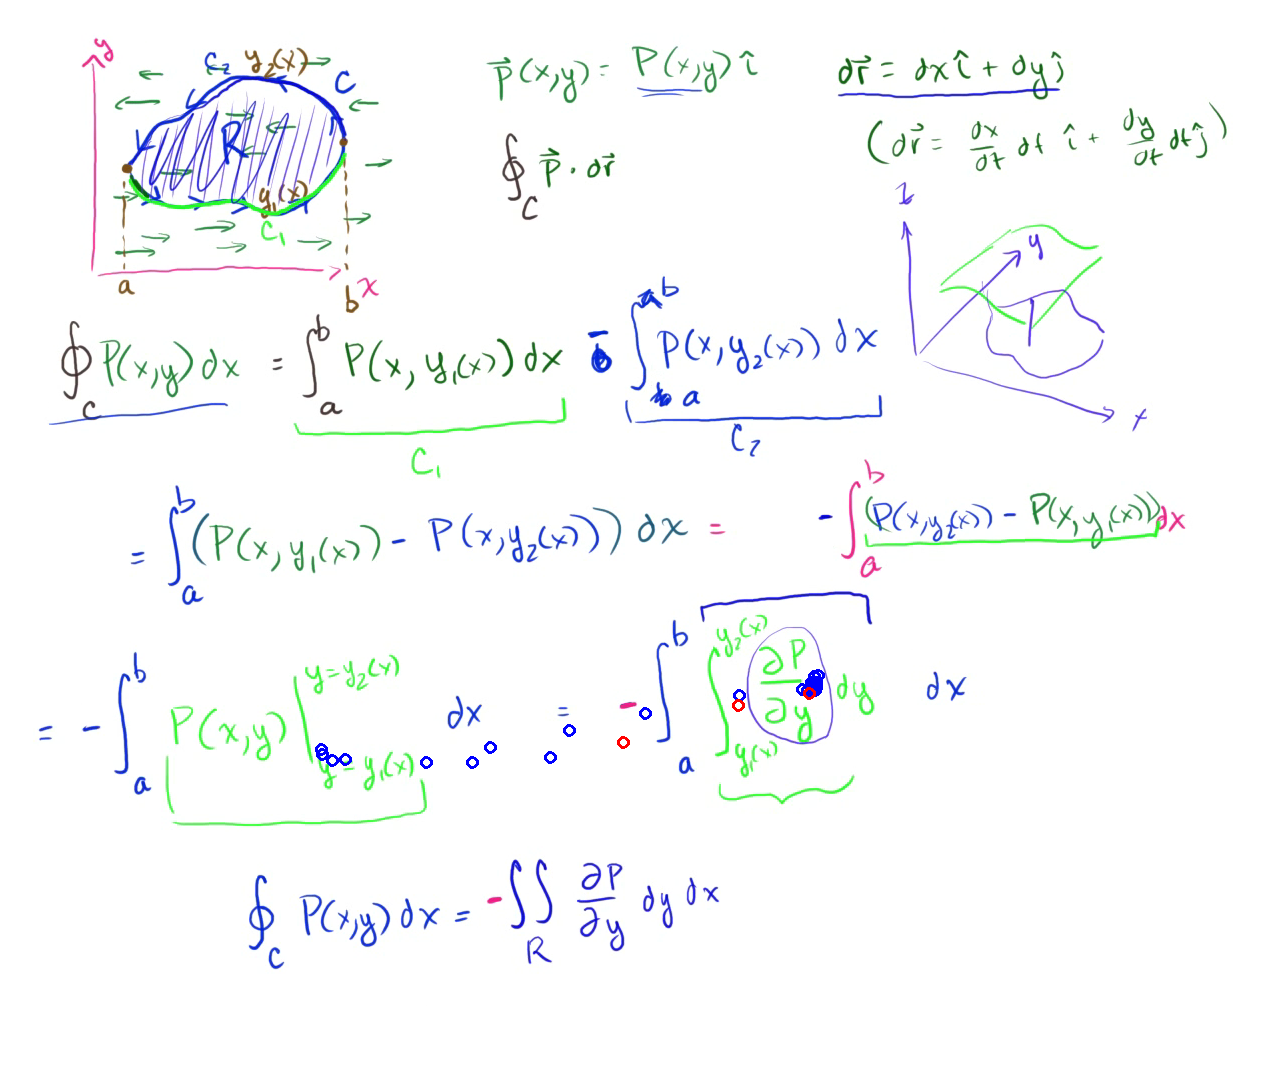 y
C₂ y₂(x)
C
R
y₁(x)
C₁
a
b x
P⃗(x,y) = P(x,y) î
dr⃗ = dx î + dy ĵ
(dr⃗ = dx/dt dt î + dy/dt dt ĵ)
∮_C P⃗ · dr⃗
z
y
x
∮_C P(x,y) dx = ∫_a^b P(x, y₁(x)) dx - ∫_a^b P(x, y₂(x)) dx
C₁
C₂
= ∫_a^b (P(x, y₁(x)) - P(x, y₂(x))) dx = - ∫_a^b (P(x, y₂(x)) - P(x, y₁(x))) dx
= - ∫_a^b P(x,y) |_{y = y₁(x)}^{y = y₂(x)} dx = - ∫_a^b ∫_{y₁(x)}^{y₂(x)} ∂P/∂y dy dx
∮_C P(x,y) dx = - ∬_R ∂P/∂y dy dx